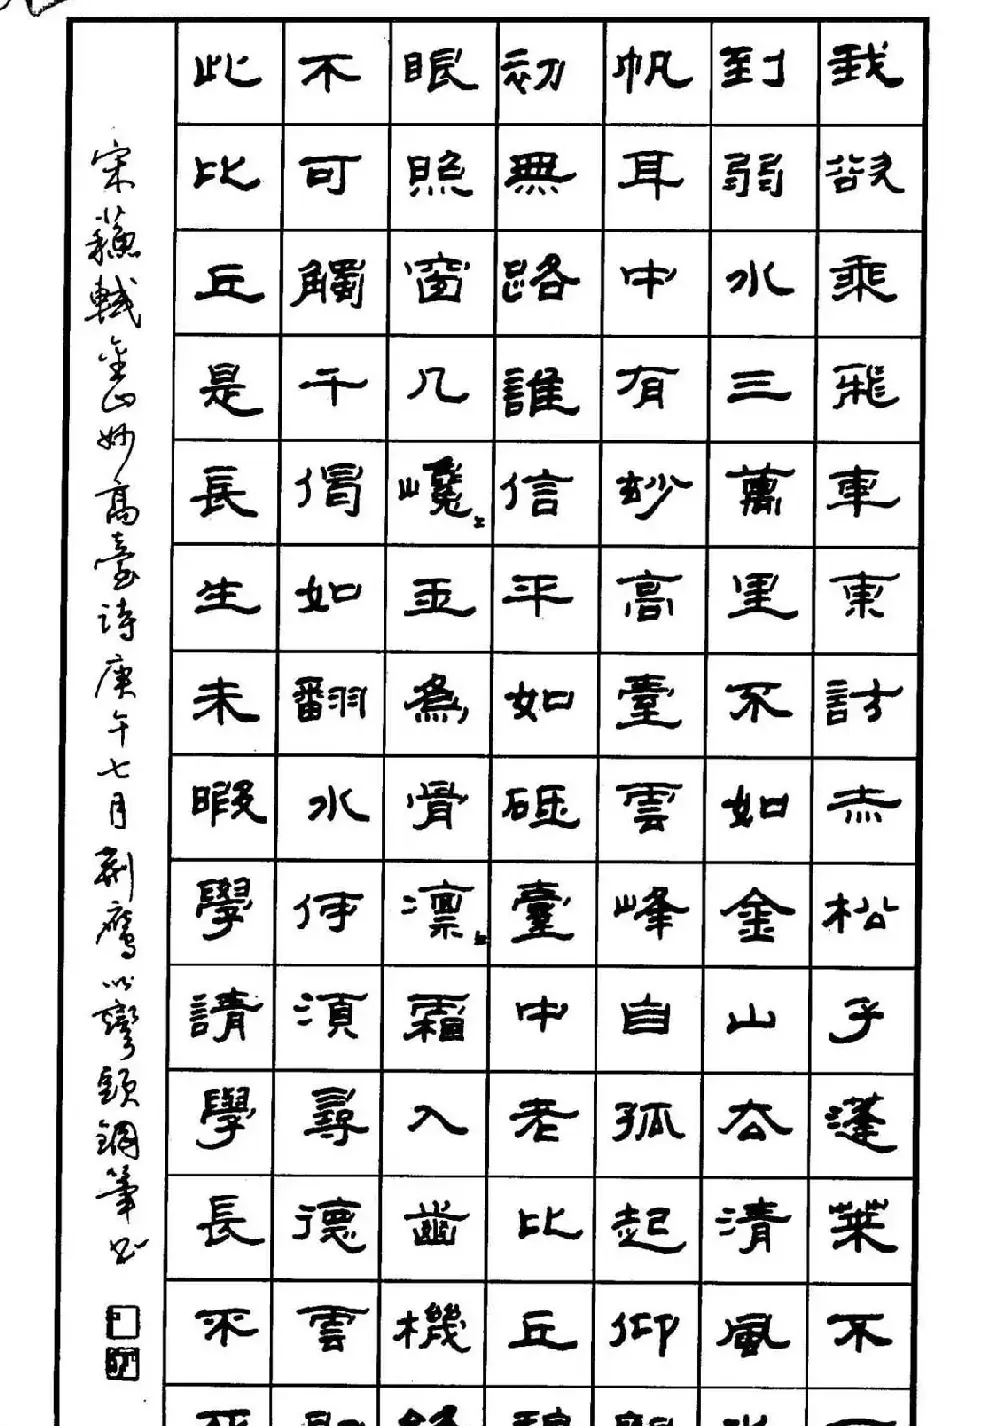 我欲乘飛車東訪赤松子蓬萊不
到弱水三萬里不如金山去清風
帆耳中有妙高臺雲峰自孤起仰
初無路誰信平如砥臺中老比丘
眼照窗几巉〻玉為骨凜〻霜入齒機
不可觸千偈如翻水何須尋德雲
此比丘是長生未暇學請學長不
宋蘇軾金山妙高臺詩庚午七月荆鷹以彎頭鋼筆书